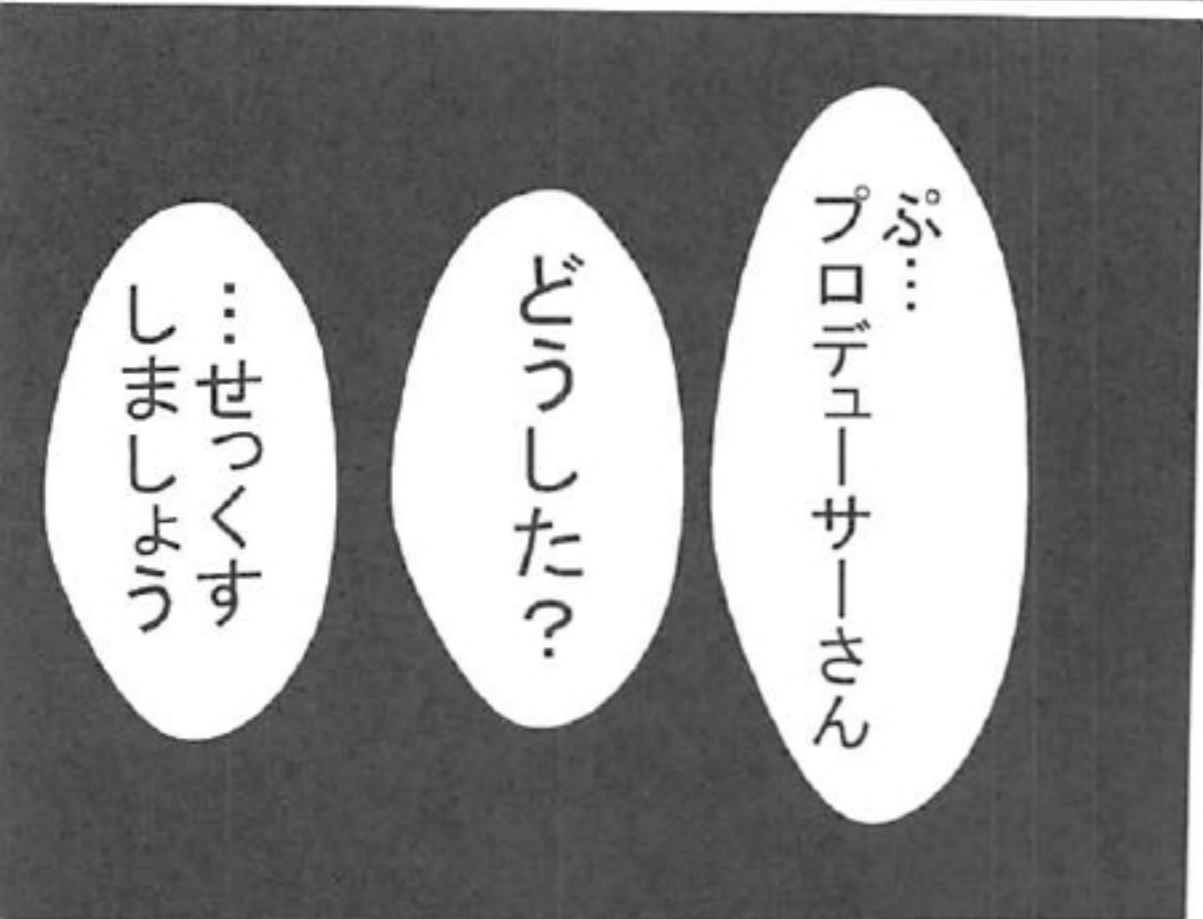 ぷ…
プロデューサーさん
どうした？
…せっくす
しましょう